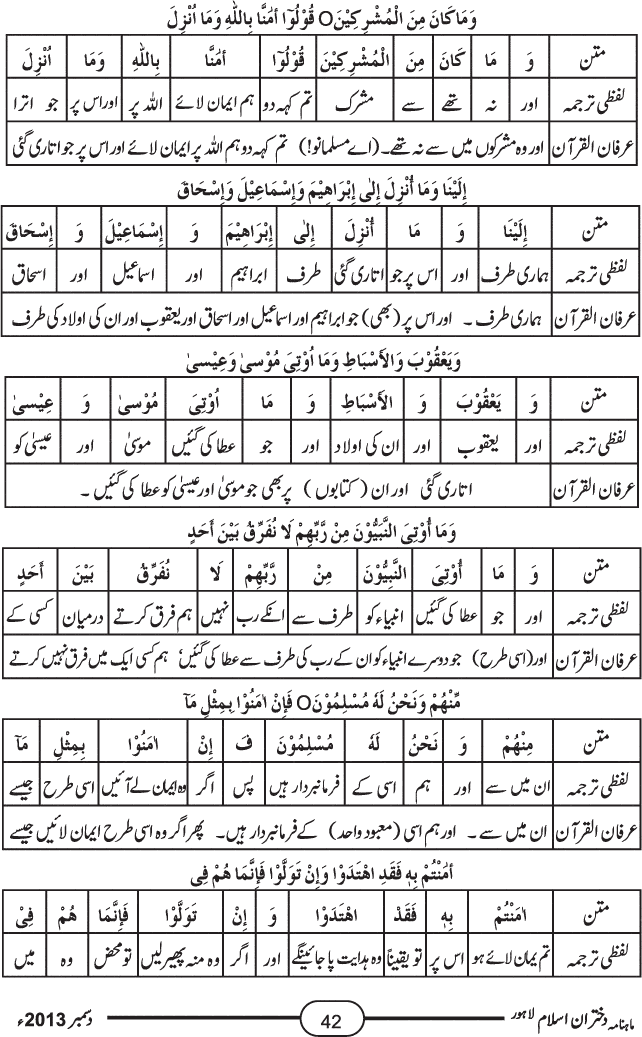 وَمَا كَانَ مِنَ الْمُشْرِكِيْنَO قُوْلُوْٓا اٰمَنَّا بِاللّٰهِ وَمَآ اُنْزِلَ
متن وَ مَا كَانَ مِنَ الْمُشْرِكِيْنَ قُوْلُوْٓا اٰمَنَّا بِاللّٰهِ وَمَآ اُنْزِلَ
لفظی ترجمہ اور نہ تھے سے مشرک تم کہہ دو ہم ایمان لائے اللہ پر اور اس پر جو اترا
عرفان القرآن اور وہ مشرکوں میں سے نہ تھے۔ (اے مسلمانو!) تم کہہ دو ہم اللہ پر ایمان لائے اور اس پر جو اتاری گئی
اِلَيْنَا وَ مَا اُنْزِلَ اِلٰى اِبْرَاهِيْمَ وَاِسْمَاعِيْلَ وَاِسْحَاقَ
متن اِلَيْنَا وَ مَا اُنْزِلَ اِلٰى اِبْرَاهِيْمَ وَ اِسْمَاعِيْلَ وَ اِسْحَاقَ
لفظی ترجمہ ہماری طرف اور اس پر جو اتاری گئی طرف ابراہیم اور اسماعیل اور اسحاق
عرفان القرآن ہماری طرف ۔ اور اس پر (بھی) جو ابراہیم اور اسماعیل اور اسحاق اور یعقوب اور ان کی اولاد کی طرف
وَيَعْقُوْبَ وَالْاَسْبَاطِ وَمَا اُوْتِىَ مُوْسىٰ وَعِيْسىٰ
متن وَ يَعْقُوْبَ وَ الْاَسْبَاطِ وَ مَا اُوْتِىَ مُوْسىٰ وَ عِيْسىٰ
لفظی ترجمہ اور یعقوب اور ان کی اولاد اور جو عطا کی گئیں موسیٰ اور عیسیٰ کو
عرفان القرآن اتاری گئی اور ان (کتابوں) پر بھی جو موسیٰ اور عیسیٰ کو عطا کی گئیں ۔
وَمَا اُوْتِىَ النَّبِيُّوْنَ مِنْ رَّبِّهِمْ لَا نُفَرِّقُ بَيْنَ اَحَدٍ
متن وَ مَا اُوْتِىَ النَّبِيُّوْنَ مِنْ رَّبِّهِمْ لَا نُفَرِّقُ بَيْنَ اَحَدٍ
لفظی ترجمہ اور جو عطا کی گئیں انبیاء کو طرف سے انکے رب نہیں ہم فرق کرتے درمیان کسی کے
عرفان القرآن اور (اسی طرح) جو دوسرے انبیاء کو ان کے رب کی طرف سے عطا کی گئیں‘ ہم کسی ایک میں فرق نہیں کرتے
مِّنْهُمْ وَنَحْنُ لَهٗ مُسْلِمُوْنَO فَاِنْ اٰمَنُوْا بِمِثْلِ مَآ
متن مِنْهُمْ وَ نَحْنُ لَهٗ مُسْلِمُوْنَ فَ اِنْ اٰمَنُوْا بِمِثْلِ مَآ
لفظی ترجمہ ان میں سے اور ہم اسی کے فرمانبردار ہیں پس اگر وہ ایمان لے آئیں اسی طرح جیسے
عرفان القرآن ان میں سے ۔ اور ہم اسی (معبود واحد) کے فرمانبردار ہیں۔ پھر اگر وہ اسی طرح ایمان لائیں جیسے
اٰمَنْتُمْ بِهٖ فَقَدِ اهْتَدَوْا وَاِنْ تَوَلَّوْا فَاِنَّمَا هُمْ فِى
متن اٰمَنْتُمْ بِهٖ فَقَدْ اهْتَدَوْا وَ اِنْ تَوَلَّوْا فَاِنَّمَا هُمْ فِىْ
لفظی ترجمہ تم یمان لائے ہو اس پر تو یقیناً وہ ہدایت پا جائینگے اور اگر وہ منہ پھیر لیں تو محض وہ میں
ماہنامہ دختران اسلام لاہور 42 دسمبر 2013ء